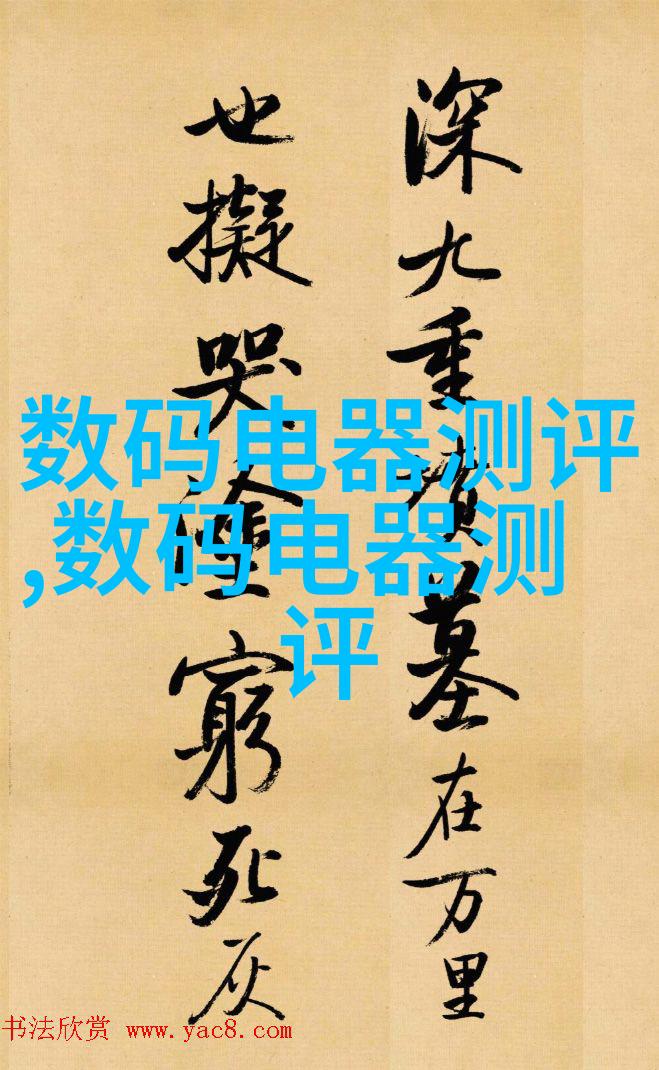 深九重墳墓在万里
也擬哭塗窮死灰
数码电器测评
,数码电器测
评
书法欣赏 www.yac8.com